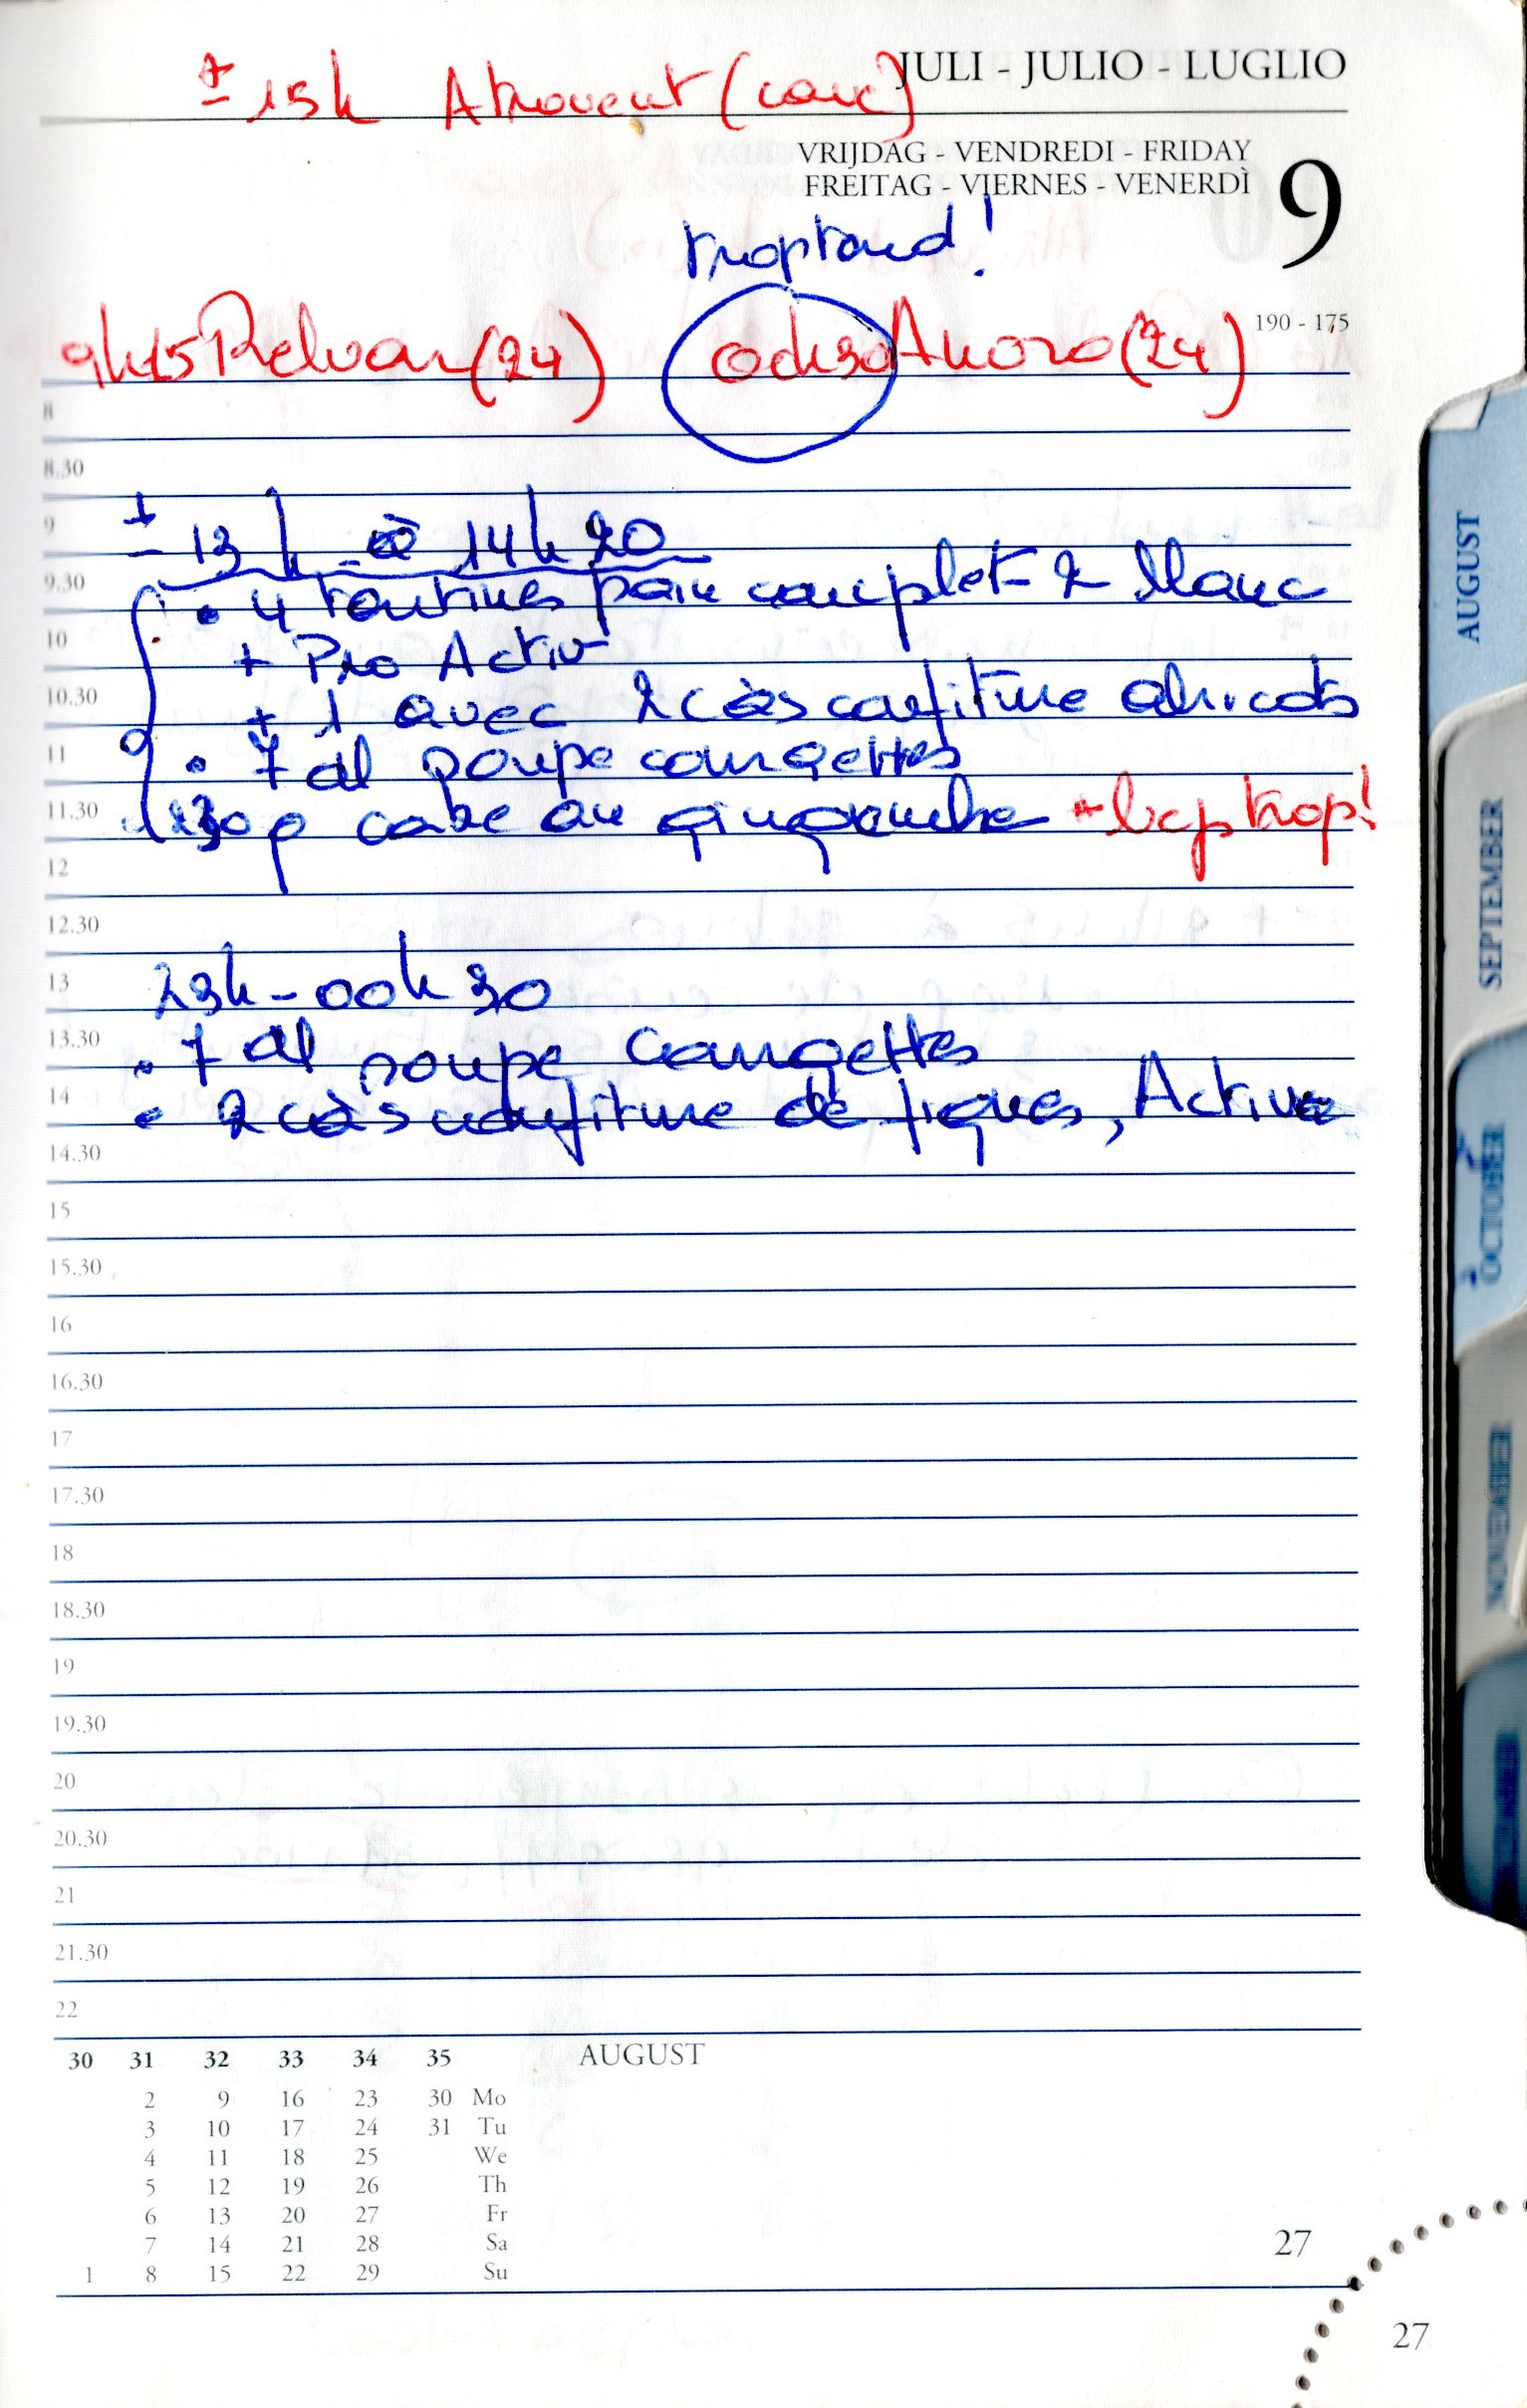 JULI - JULIO - LUGLIO
± 15h Atrovent (
VRIJDAG - VENDREDI - FRIDAY
FREITAG - VIERNES - VENERDÌ
9
trop tard !
190 - 175
9h15 Relvar (24) 00h30 Anoro (24)
8
8.30
9
± 13h à 14h20
9.30
• 4 tartines pain complet - 2 blanc
10
+ Pro Activ
10.30
+ 1 avec 2 càs confiture abricots
11
• 7 dl soupe courgettes
11.30
130 g cake au gingembre + bcp trop!
12
12.30
13
23h - 00h30
13.30
• 7 dl soupe courgettes
14
• 2 càs confiture de figues, Activia
14.30
15
15.30
16
16.30
17
17.30
18
18.30
19
19.30
20
20.30
21
21.30
22
30 31 32 33 34 35 AUGUST
2 9 16 23 30 Mo
3 10 17 24 31 Tu
4 11 18 25 We
5 12 19 26 Th
6 13 20 27 Fr
7 14 21 28 Sa
1 8 15 22 29 Su
27
27
AUGUST
SEPTEMBER
OCTOBER
NOVEMBER